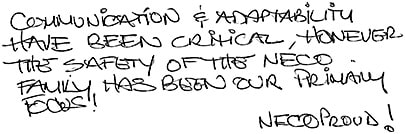 COMMUNICATION & ADAPTABILITY
HAVE BEEN CRITICAL, HOWEVER
THE SAFETY OF THE NECO
FAMILY, HAS BEEN OUR PRIMARY
FOCUS!
NECOPROUD!